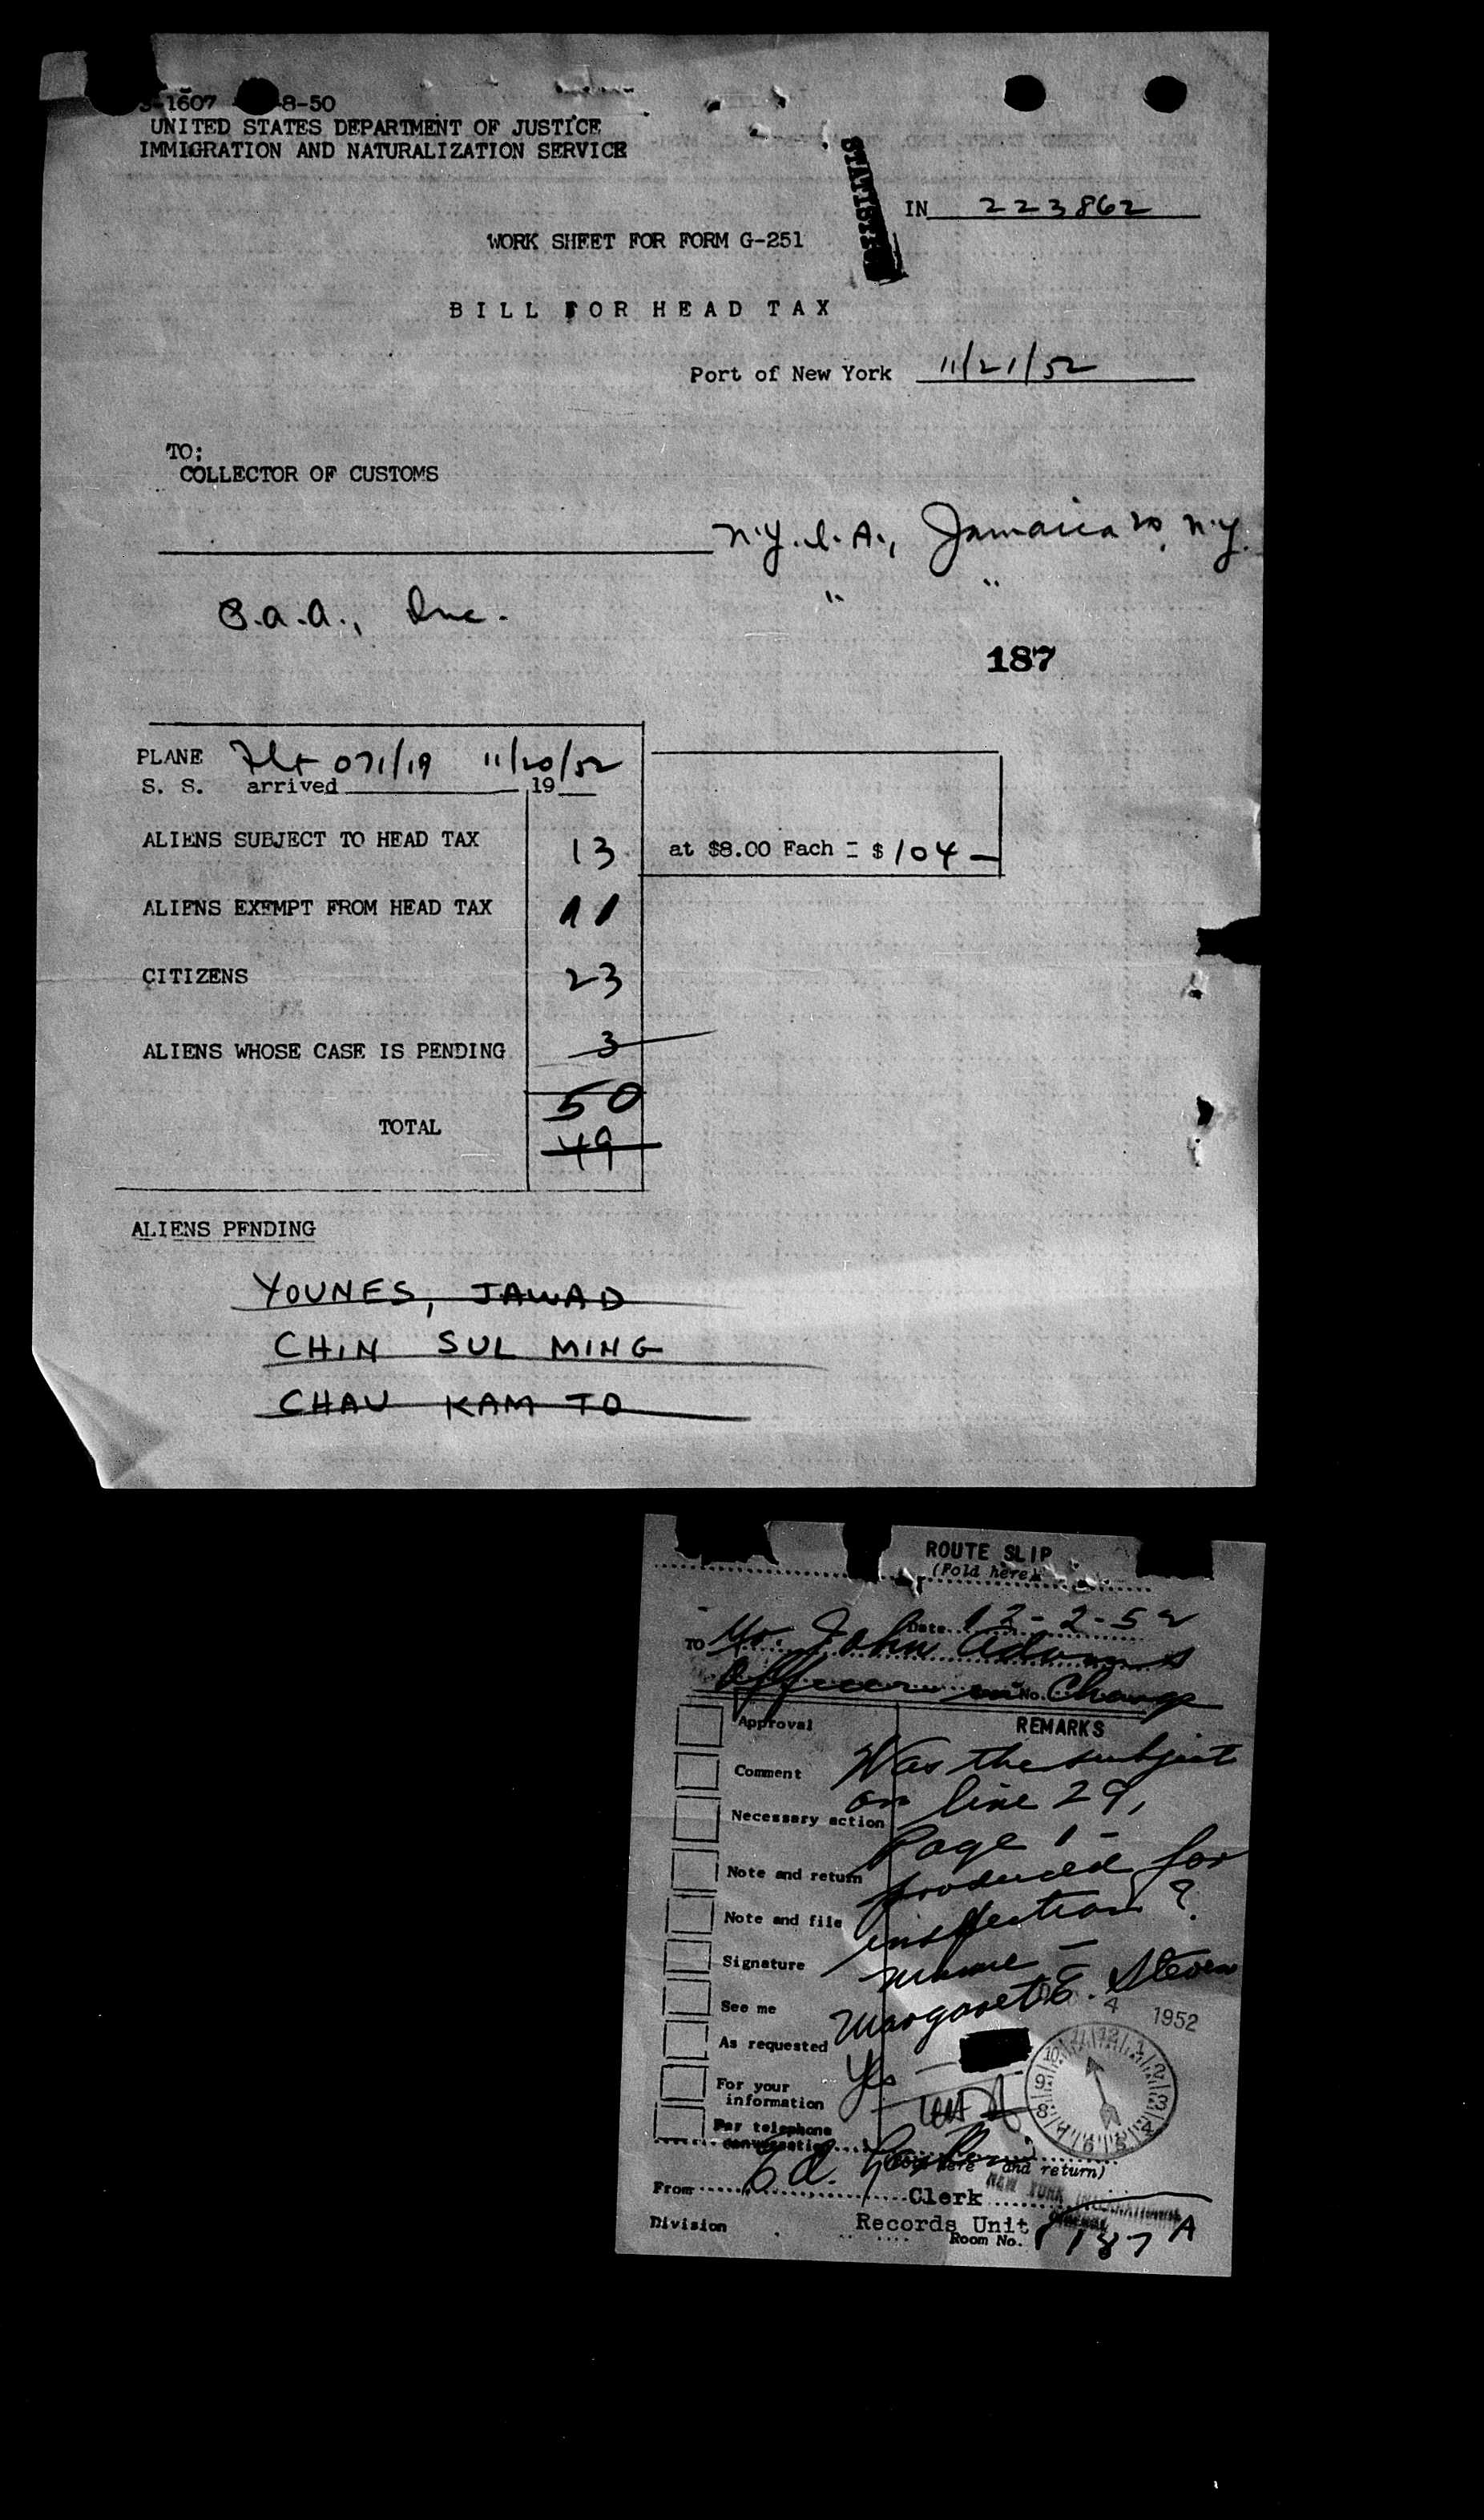 -1607 -8-50
UNITED STATES DEPARTMENT OF JUSTICE
IMMIGRATION AND NATURALIZATION SERVICE
IN 223862
WORK SHEET FOR FORM G-251
BILL FOR HEAD TAX
Port of New York 11/21/52
TO;
COLLECTOR OF CUSTOMS
N.Y.I.A., Jamaica 20, N.Y.
" "
Inc.
187
PLANE Flt 071/19 11/20/52
S. S. arrived 19
ALIENS SUBJECT TO HEAD TAX 13 at $8.00 Each = $ 104 -
ALIENS EXEMPT FROM HEAD TAX 11
CITIZENS 23
ALIENS WHOSE CASE IS PENDING 3
50
TOTAL
49
ALIENS PENDING
YOUNES, JAWAD
CHIN SUL MING
CHAU KAM TO
ROUTE SLIP
(Fold here)
Date 12-2-52
TO Mr. John Adams
Officer in Charge
No.
Approval
REMARKS
Comment
Was the subject
on line 29,
Necessary action
Page 1 -
Note and return
produced for
Note and file
inspection ?
Signature
Name -
See me
Margaret E. Steven
4 1952
As requested
Yes -
For your
information
Per telephone
conversation
Ed.
and return)
From
Clerk
NEW YORK INTERNATIONAL
Division
Records Unit
Room No.
187 A